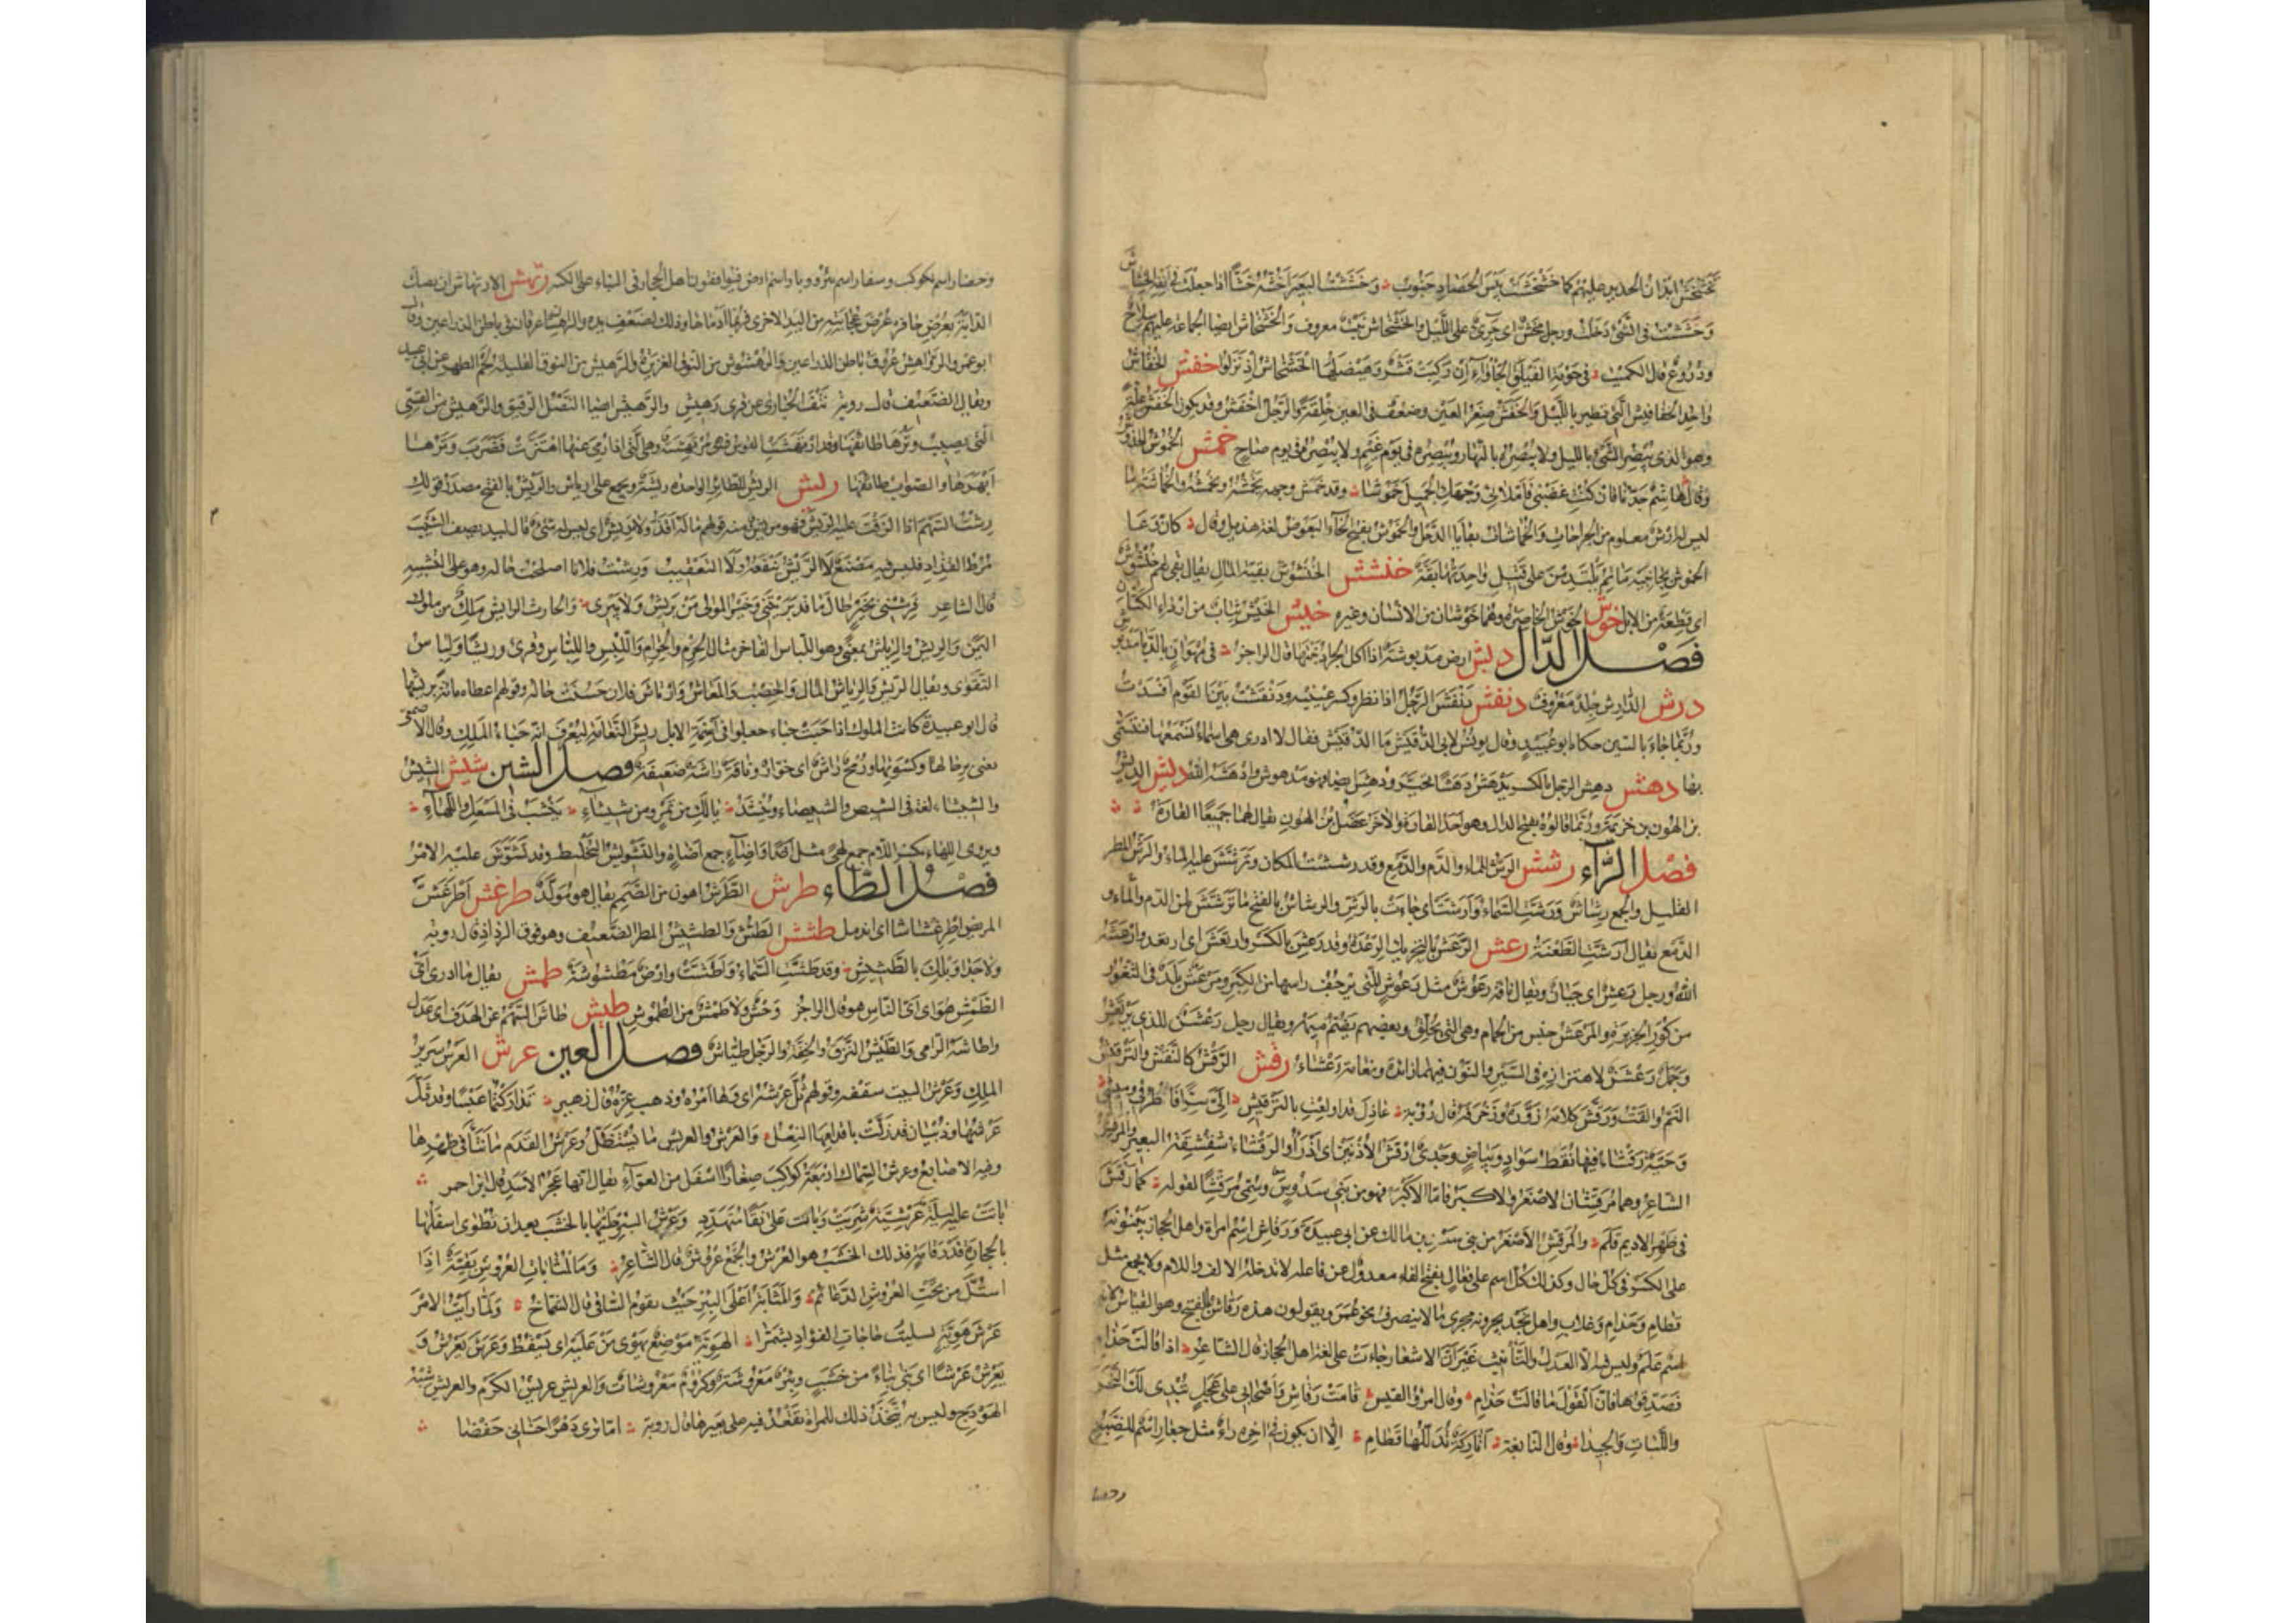 تخشخش ابدان الحديد عليهم كما خشخشت يبس الحصاد جنوب وخششت البعير اخشه خشا اذا جعلت في انفه الخشاش
وخششت في الشئ دخلت ورجل مخش اي جرئ على الليل والخشخاش نبت معروف والخشخاش ايضا الجماعة عليهم سلاح
ودروع قال الكميت في حومة الفيلق الجأواء اذ ركبت قسر وهيضلها الخشخاش اذ نزلوا خفش الخفاش
واحد الخفافيش التي تطير بالليل والخفش صغر العين وضعف في العين خلقة والرجل اخفش وقد يكون الخفش علة
وهو الذي يبصر الشئ بالليل ولا يبصره بالنهار ويبصره في يوم غيم ولا يبصره في يوم صاح خمش الخموش الخدوش
وقال هاشم جدنا فان كنت غضبى فاملائي وجهك الجميل خموشا وقد خمش وجهه يخمشه ويخمشه والخماشة ما
ليس له ارش معلوم من الجراحات والخماشات بقايا الذحل والخموش بفتح الخاء البعوض لغة هذيل وقال كان وغا
الخموش بجانبيه ماتم يلتدمن على قتيل واحدتها بقة خنشش الخنشوش بقية المال يقال بقي لهم خنشوش
اي قطعة من الابل خوش الخوش الخاصرة وهما خوشان من الانسان وغيره خيش الخيش ثياب من اردا الكتان
فصل الدال دبش ارض مدبوشة اذا اكل الجراد نبتها قال الراجز في مهوأن بالدبا مدبوش
درش الدارش جلد معروف دنقش دنقش الرجل اذا نظر وكسر عينيه ودنقشت بين القوم افسدت
وربما جاء بالسين حكاه ابو عبيد وقال يونس لابي الدقيش ما الدقيش فقال لا ادري هي اسماء نسمعها فنتسمى
بها دهش دهش الرجل بالكسر يدهش دهشا تحير ودهش ايضا فهو مدهوش وادهشه الله ديش الديش
بن الهون بن خزيمة وربما قالوه بفتح الدال وهو احد القارة والآخر عضل بن الهون يقال لهما جميعا القارة
فصل الراء رشش الرش للماء والدم والدمع وقد رششت المكان وترشش عليه الماء والرش المطر
القليل والجمع رشاش ورشت السماء وارشت اي جاءت بالرش والرشاش بالفتح ما ترشش من الدم والماء و
الدمع يقال ارشت الطعنة رعش الرعش بالتحريك الرعدة وقد رعش بالكسر وارتعش اي ارتعد وارعشه
الله ورجل رعش اي جبان ويقال ناقة رعوش مثل رعوس للتي يرجف راسها من الكبر ومرعش بلد في الثغور
من كور الجزيرة والمرعش جنس من الحمام وهي التي تحلق وبعضهم يضم ميمه ويقال رجل رعشن للذي يرتعش
وجمل رعشن لاهتزازه في السير والنون فيهما زائدة ونعامة رعشاء رقش الرقش كالنقش والترقيش
النم والقت ورقش كلامه زوره وزخرفه قال رؤبة عاذل قد اولعت بالترقيش الي سرا فاطرقي وميشي
وحية رقشاء فيها نقط سواد وبياض وجدي ارقش الاذنين اي اذرأ والرقشاء شقشقة البعير والمرقش
الشاعر وهما مرقشان الاصغر والاكبر فاما الاكبر فهو من بني سدوس وسمي مرقشا لقوله كما رقش
في ظهر الاديم قلم والمرقش الاصغر من بني سعد بن مالك عن ابي عبيدة ورقاش اسم امراة واهل الحجاز يبنونه
على الكسر في كل حال وكذلك كل اسم على فعال بفتح الفاء معدول عن فاعلة لا يدخله الالف واللام ولا يجمع مثل
قطام وحذام وغلاب واهل نجد يجرونه مجرى ما لا ينصرف نحو عمر ويقولون هذه رقاش بالفتح وهو القياس لانه
اسم علم وليس فيه الا العدل والتأنيث غير ان الاشعار جاءت على لغة اهل الحجاز قال الشاعر اذا قالت حذام
فصدقوها فان القول ما قالت حذام وقال امرؤ القيس قامت رقاش واصحابي على عجل تبدي لك النحر
واللبات والجيدا وقال النابغة اتاركة تدللها قطام الا ان يكون في آخره راء مثل جعار اسم للضبع
وحضا
وحضار اسم كوكب وسفار اسم بئر ووبار اسم ارض فيوافقون اهل الحجاز في البناء على الكسر رهش الارتهاش ان يصك
الدابة بعرض حافره عرض عجايته من اليد الاخرى فربما ادماها وذلك لضعف يده والراهشان عرقان في باطن الذراعين وقال
ابو عمرو الرواهش عروق باطن الذراعين والرهشوش من النوق الغزيرة والرهيش من النوق القليلة لحم الظهر عن ابي عبيد
ويقال الضعيف قال رؤبة نتف الحبارى عن قرى رهيش والرهيش ايضا النصل الرقيق والرهيش من القسي
التي يصيب وترها طائفها وقد ارتهشت القوس فهي مرتهشة وهي التي اذا رمي عنها اهتزت فضرب وترها
ابهرها والصواب طائفها ريش الريش للطائر الواحدة ريشة ويجمع على ارياش والريش بالفتح مصدر قولك
رشت السهم اذا الزقت عليه الريش فهو مريش ومنه قولهم ما له اقذ ولا مريش اي ليس له شئ قال لبيد يصف الشيب
مرط القذاذ فليس فيه مصنع لا الريش ينفعه ولا التعقيب ورشت فلانا اصلحت حاله وهو على التشبيه
قال الشاعر فرشني بخير طال ما قد بريتني وخير الموالي من يريش ولا يبري والحارث الرايش ملك من ملوك
اليمن والريش والرياش بمعنى وهو اللباس الفاخر مثال الحرم والحرام واللبس واللباس وقرئ وريشا ولباس
التقوى ويقال الريش والرياش المال والخصب والمعاش وارتاش فلان حسنت حاله وقولهم اعطاه مائة بريشها
قال ابو عبيدة كانت الملوك اذا حبت حباء جعلوا في اسنمة الابل ريش النعامة ليعرف انه حباء الملك وقال الاصمعي
يعني برحالها وكسوتها ورمح راش اي خوار وناقة راشة ضعيفة فصل الشين شيش الشيش
والشيشاء لغة في الشيص والشيصاء وينشد يا لك من تمر ومن شيشاء ينشب في المسعل واللهاء
ويروى اللهاء بكسر اللام جمع لهى مثل اضا واضاء جمع اضاة والتشويش التخليط وقد تشوش عليه الامر
فصل الطاء طرش الطرش اهون من الصمم يقال هو مولد طرغش اطرغش
المريض اطرغشاشا اي اندمل طشش الطش والطشيش المطر الضعيف وهو فوق الرذاذ قال رؤبة
ولا جدا وبلك بالطشيش وقد طشت السماء واطشت وارض مطشوشة طمش يقال ما ادري اي
الطمش هو اي اي الناس هو قال الراجز وحش ولا طمش من الطموش طيش طاش السهم عن الهدف اي عدل
واطاشه الرامي والطيش النزق والخفة والرجل طياش فصل العين عرش العرش سرير
الملك وعرش البيت سقفه وقولهم ثل عرشه اي وها امره وذهب عزه قال زهير تداركتما عبسا وقد ثل
عرشها وذبيان قد زلت باقدامها النعل والعرش والعريش ما يستظل به وعرش القدم ما نتأ في ظهرها
وفيه الاصابع وعرش السماك اربعة كواكب صغار اسفل من العواء يقال انها عجز الاسد قال ابن احمر
باتت عليه ليلة عرشية شريت وباتت على نقا متهدد وعرش البئر طيها بالخشب بعد ان تطوى اسفلها
بالحجارة قدر قامة فذلك الخشب هو العرش والجمع عروش قال الشاعر وما لمثابات العروش بقية اذا
استل من تحت العروش الدعائم والمثابة اعلى البئر حيث يقوم الساقي قال الشماخ ولما رايت الامر
عرش هوية تسليت حاجات الفؤاد بشمرا الهوية موضع يهوي من عليه اي يسقط وعرش يعرش و
يعرش عرشا اي بنى بناء من خشب وبئر معروشة وكروم معروشات والعريش عريش الكرم والعريش شبه
الهودج وليس به يتخذ ذلك للمراة تقعد فيه على بعيرها قال رؤبة اما ترى دهرا حناني حفضا